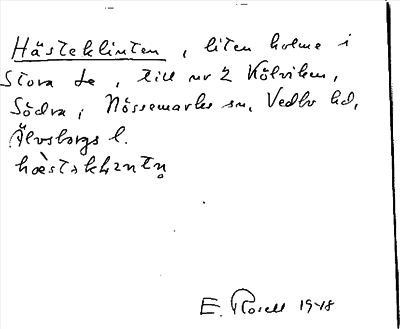 Hästeklinten, liten holme i
Stora Le, till nr 2 Kölviken,
Södra, Nössemarks sn, Vedbo hd,
Älvsborgs l.
E. Rosell 1948